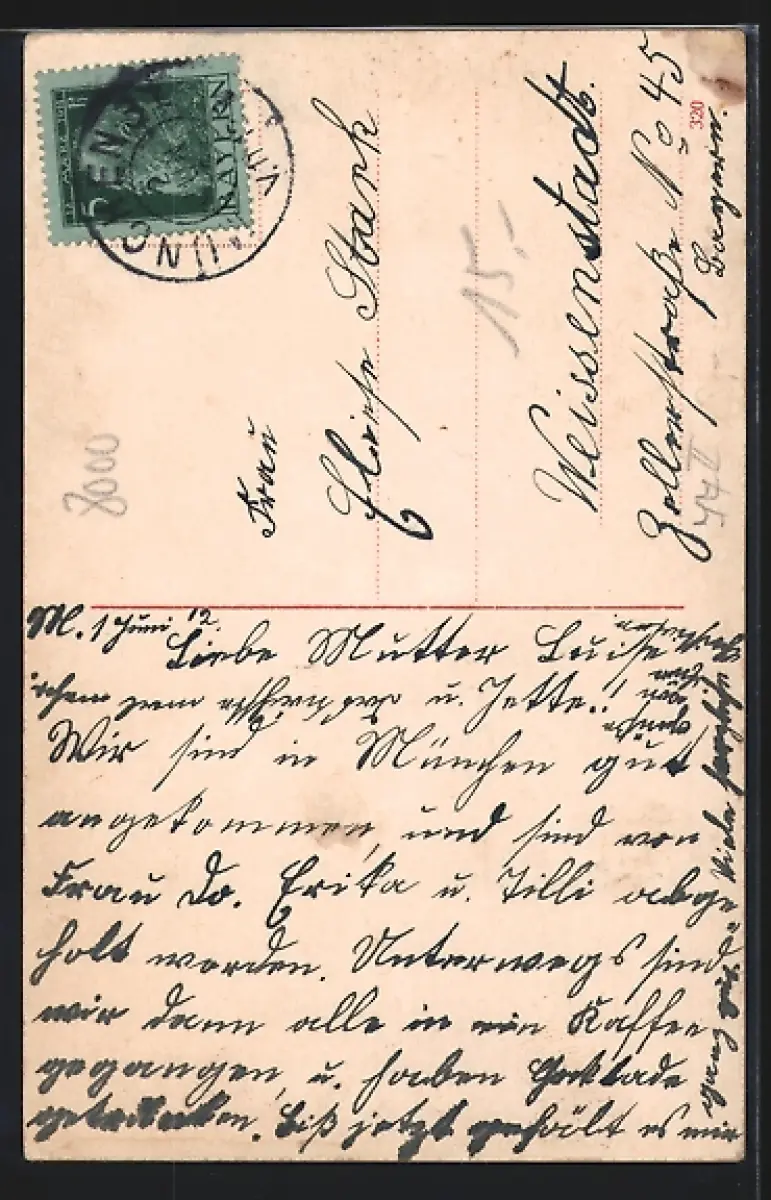 BAYERN
5
MÜNCHEN
Frau
Eliese Stark
15.-
Weissenstadt.
Zollerstraße No 45
Bayern.
320
8000
M. 1 Juni 12.
Liebe Mutter Luise
u. Jette!!
Wir sind in München gut
angekommen, und sind von
Frau Dr. Erika u. Tilli abge-
holt worden. Unterwegs sind
wir dann alle in ein Kaffee
gegangen, u. haben
getrunken. Biß jetzt gefällt es mir
ganz gut. Viele herzliche